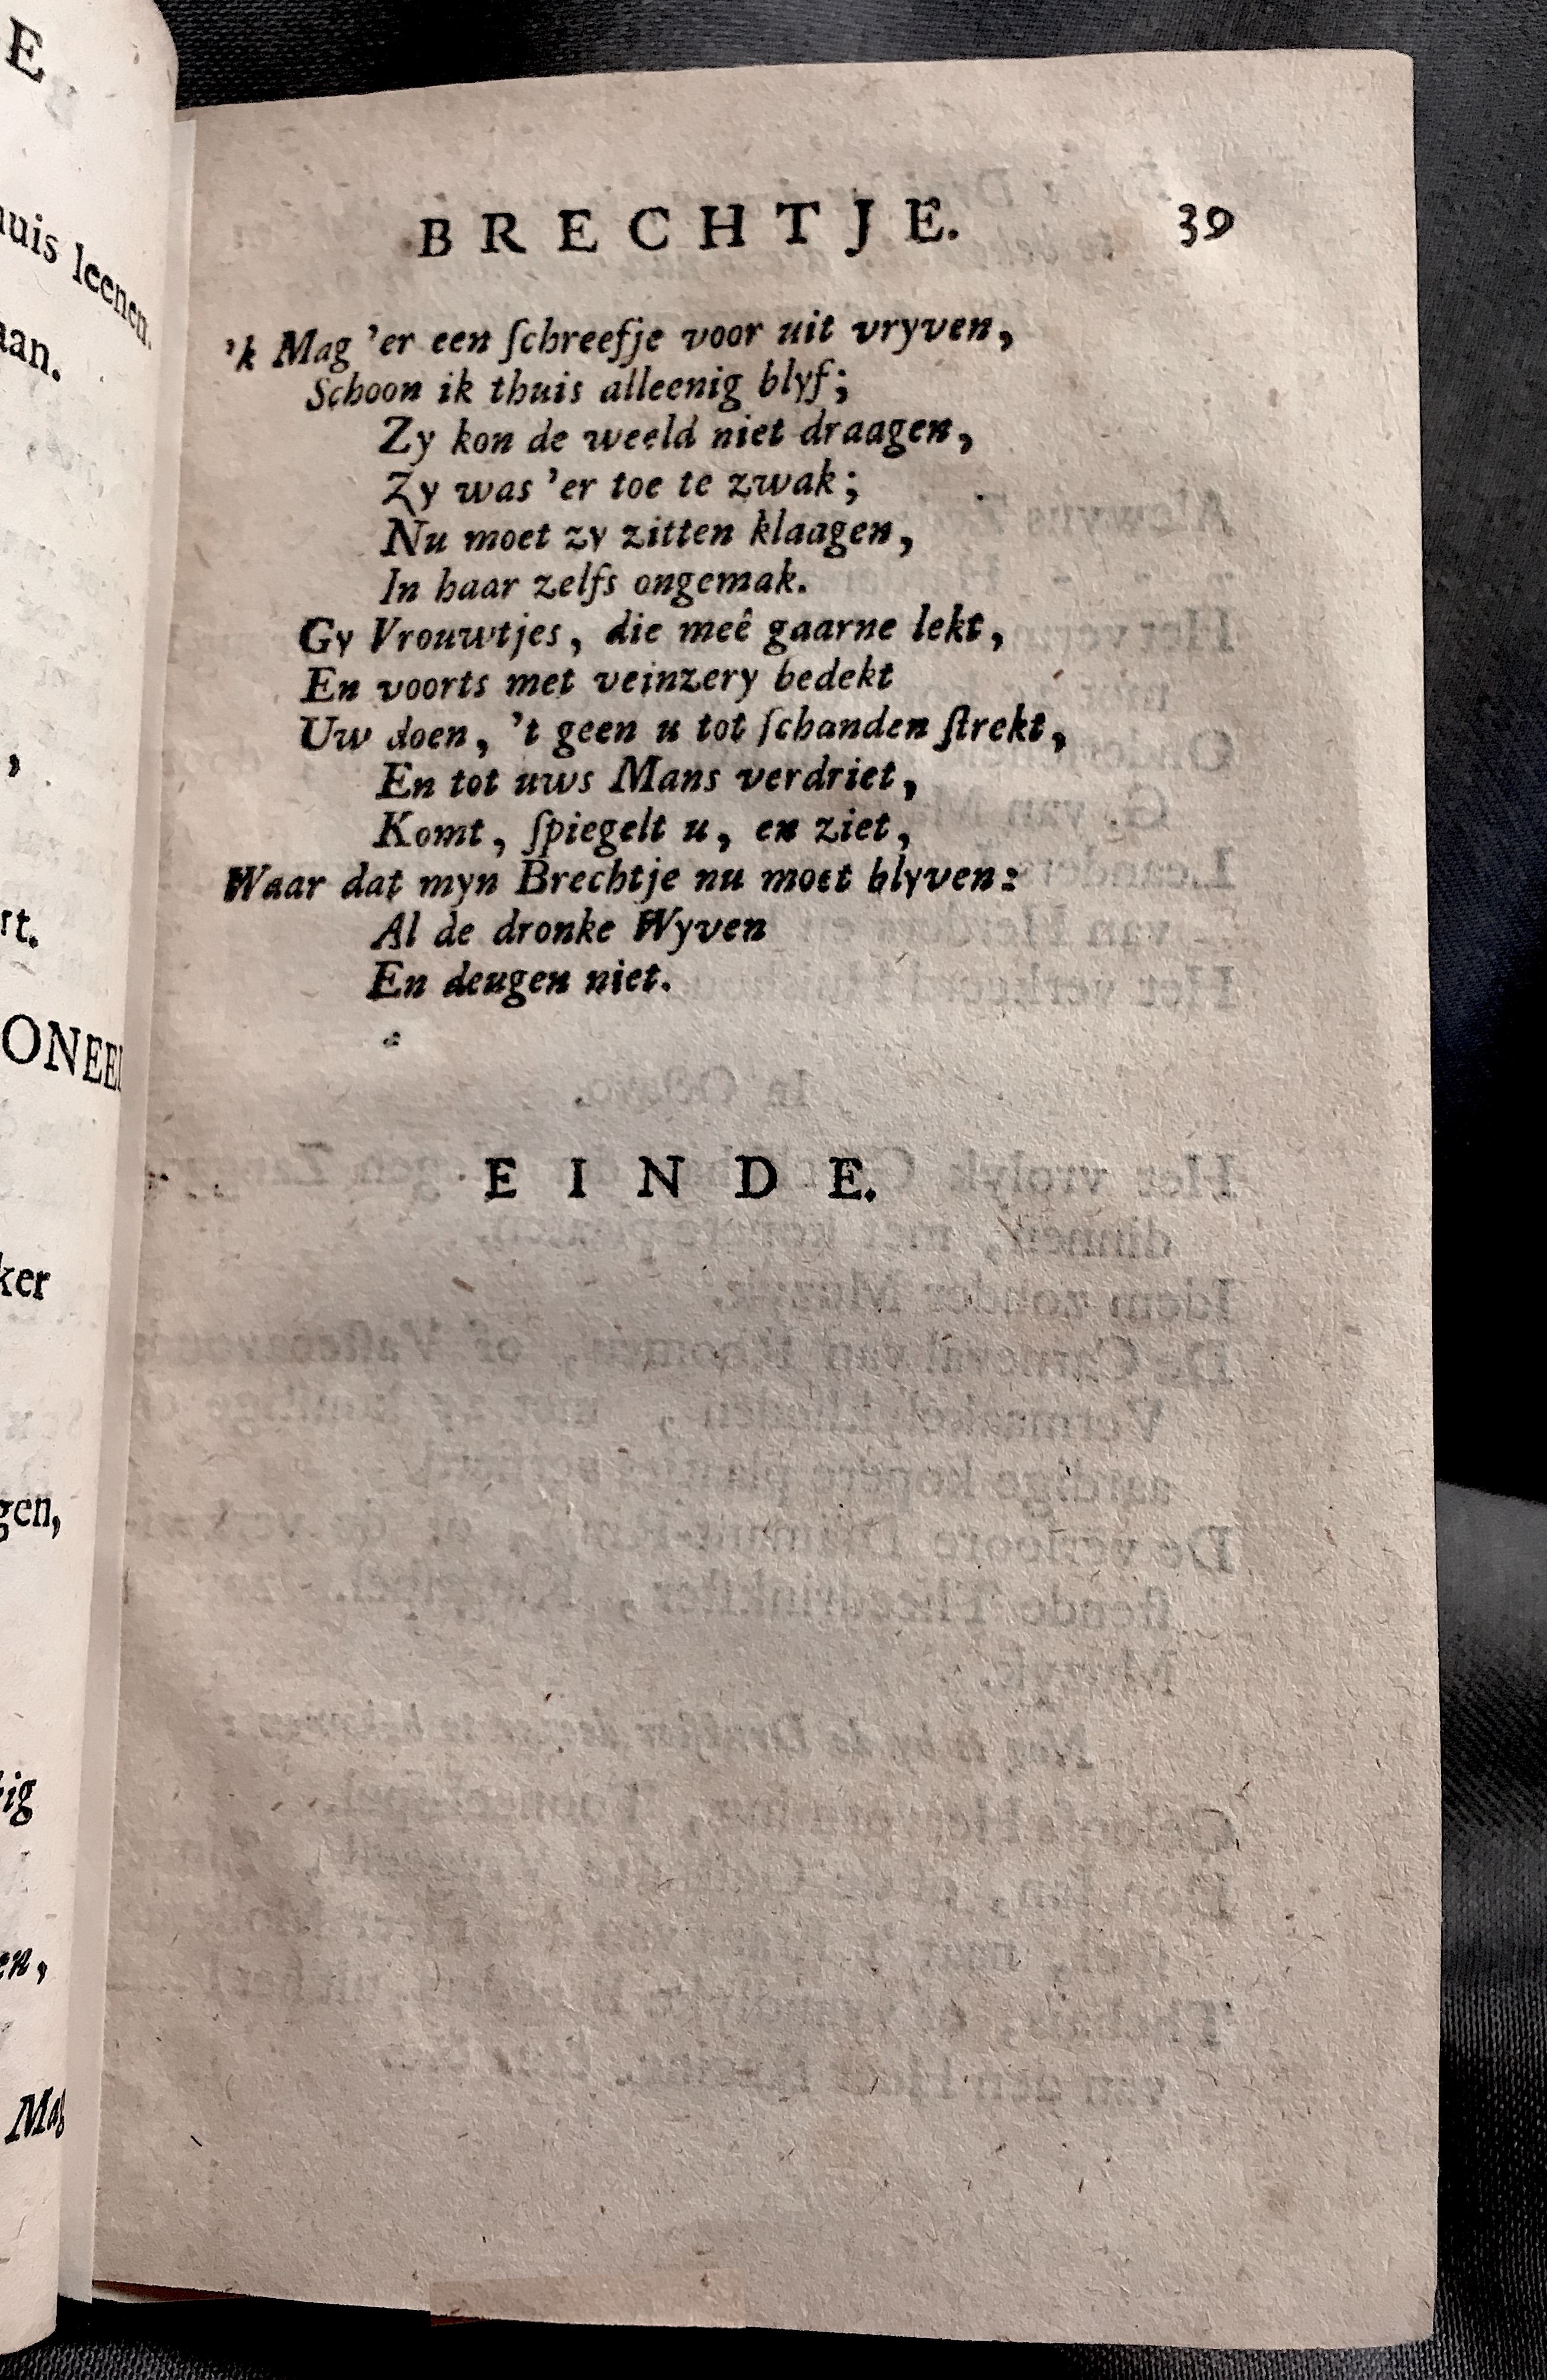 E
huis leenen.
aan.
,
rt.
ONEEL
ker
gen,
tig
en,
Mag
BRECHTJE. 39
'k Mag 'er een ſchreefje voor uit vryven,
Schoon ik thuis alleenig blyf;
Zy kon de weeld niet draagen,
Zy was 'er toe te zwak;
Nu moet zy zitten klaagen,
In haar zelfs ongemak.
Gy Vrouwtjes, die meê gaarne lekt,
En voorts met veinzery bedekt
Uw doen, 't geen u tot ſchanden ſtrekt,
En tot uws Mans verdriet,
Komt, ſpiegelt u, en ziet,
Waar dat myn Brechtje nu moet blyven:
Al de dronke Wyven
En deugen niet.
EINDE.